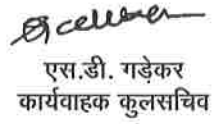 एस.डी. गडेकर
कार्यवाहक कुलसचिव